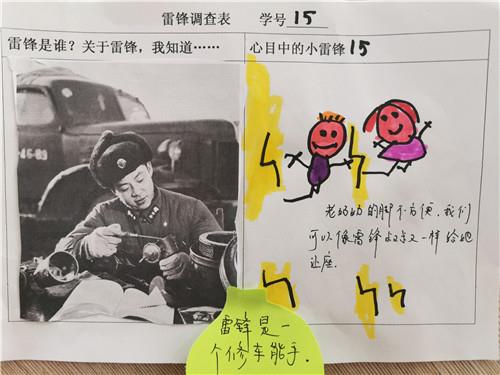 雷锋调查表 学号 15
雷锋是谁？关于雷锋，我知道……
心目中的小雷锋 15
老奶奶的脚不方便，我们
可以像雷锋叔叔一样给她
让座。
雷锋是一
个修车能手.